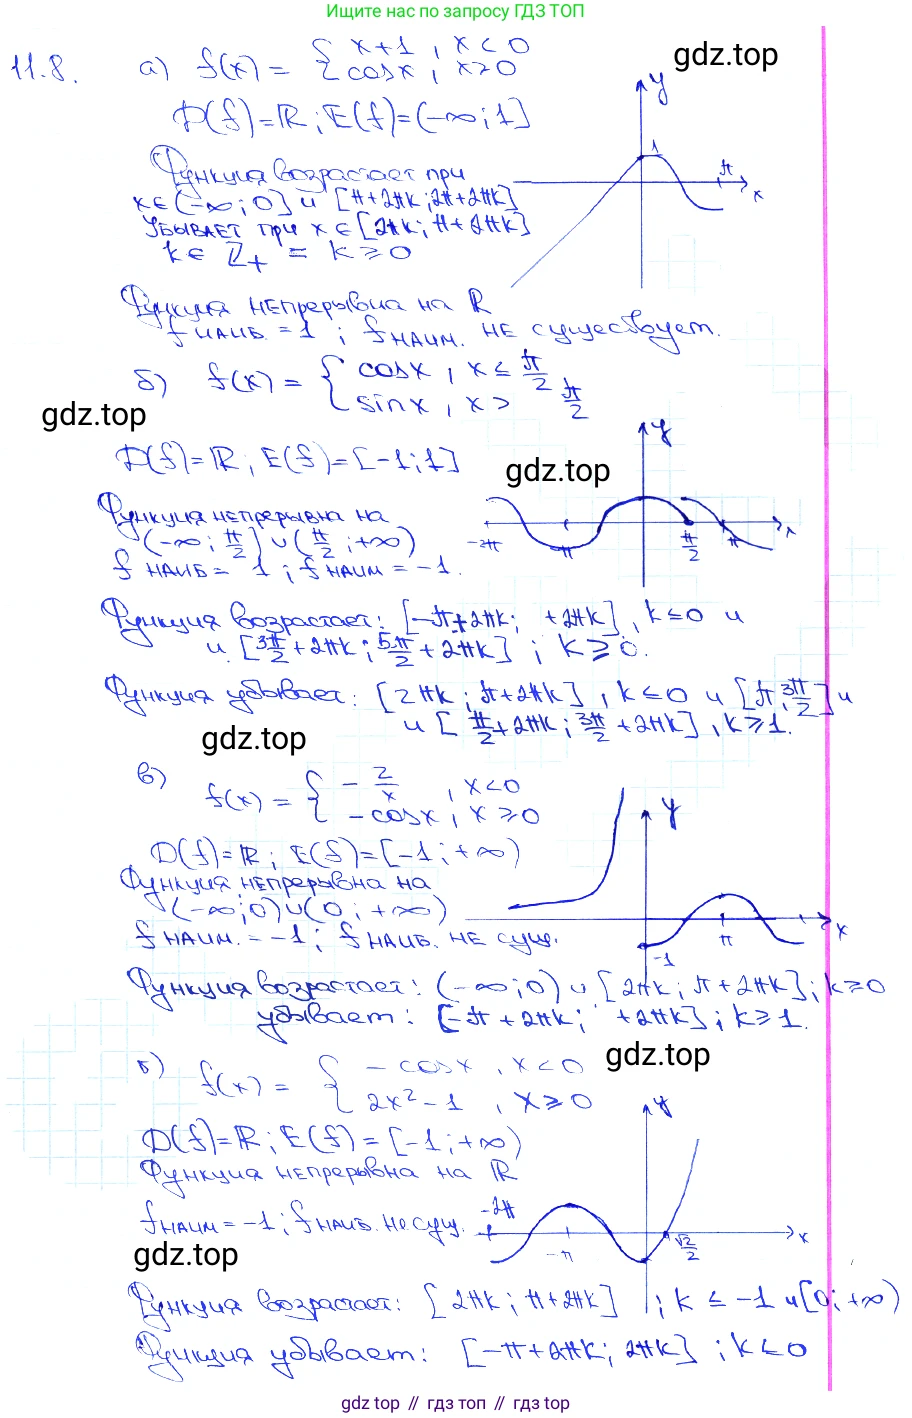 Ищите нас по запросу ГДЗ ТОП
11.8. а) f(x) = { x+1 , x < 0
cosx , x ≥ 0
gdz.top
D(f)=ℝ; E(f)=(-∞;1]
Функция возрастает при
x∈(-∞;0] и [π+2πk;2π+2πk]
Убывает при x∈[2πk; π+2πk]
k∈ℤ₊ = k⩾0
y
1
π
x
Функция непрерывна на ℝ
f наиб. = 1 ; f наим. не существует.
б) f(x) = { cosx , x ≤ π/2
sinx , x > π/2
gdz.top
D(f)=ℝ; E(f)=[-1;1]
gdz.top
Функция непрерывна на
(-∞; π/2] ∪ (π/2; +∞)
f наиб = 1 ; f наим = -1.
y
-2π
-π
π/2
π
x
Функция возрастает: [-π+2πk; +2πk], k≤0 и
и [3π/2+2πk; 5π/2+2πk] ; k⩾0.
Функция убывает: [2πk; π+2πk], k≤0 и [π; 3π/2] и
и [π/2+2πk; 3π/2+2πk], k⩾1.
gdz.top
в) f(x) = { -2/x , x<0
-cosx , x⩾0
D(f)=ℝ; E(f)=[-1;+∞)
Функция непрерывна на
(-∞;0)∪(0;+∞)
f наим. = -1; f наиб. не сущ.
y
-1
π
x
Функция возрастает: (-∞;0) и [2πk; π+2πk]; k⩾0
убывает: [-π+2πk; +2πk]; k⩾1.
gdz.top
f(x) = { -cosx , x<0
2x²-1 , x⩾0
D(f)=ℝ; E(f)=[-1;+∞)
Функция непрерывна на ℝ
f наим = -1; f наиб. не сущ.
y
-2π
-π
√2/2
x
gdz.top
Функция возрастает: [2πk; π+2πk] ; k ≤ -1 и [0;+∞)
Функция убывает: [-π+2πk; 2πk] ; k≤0
gdz.top // гдз топ // гдз top